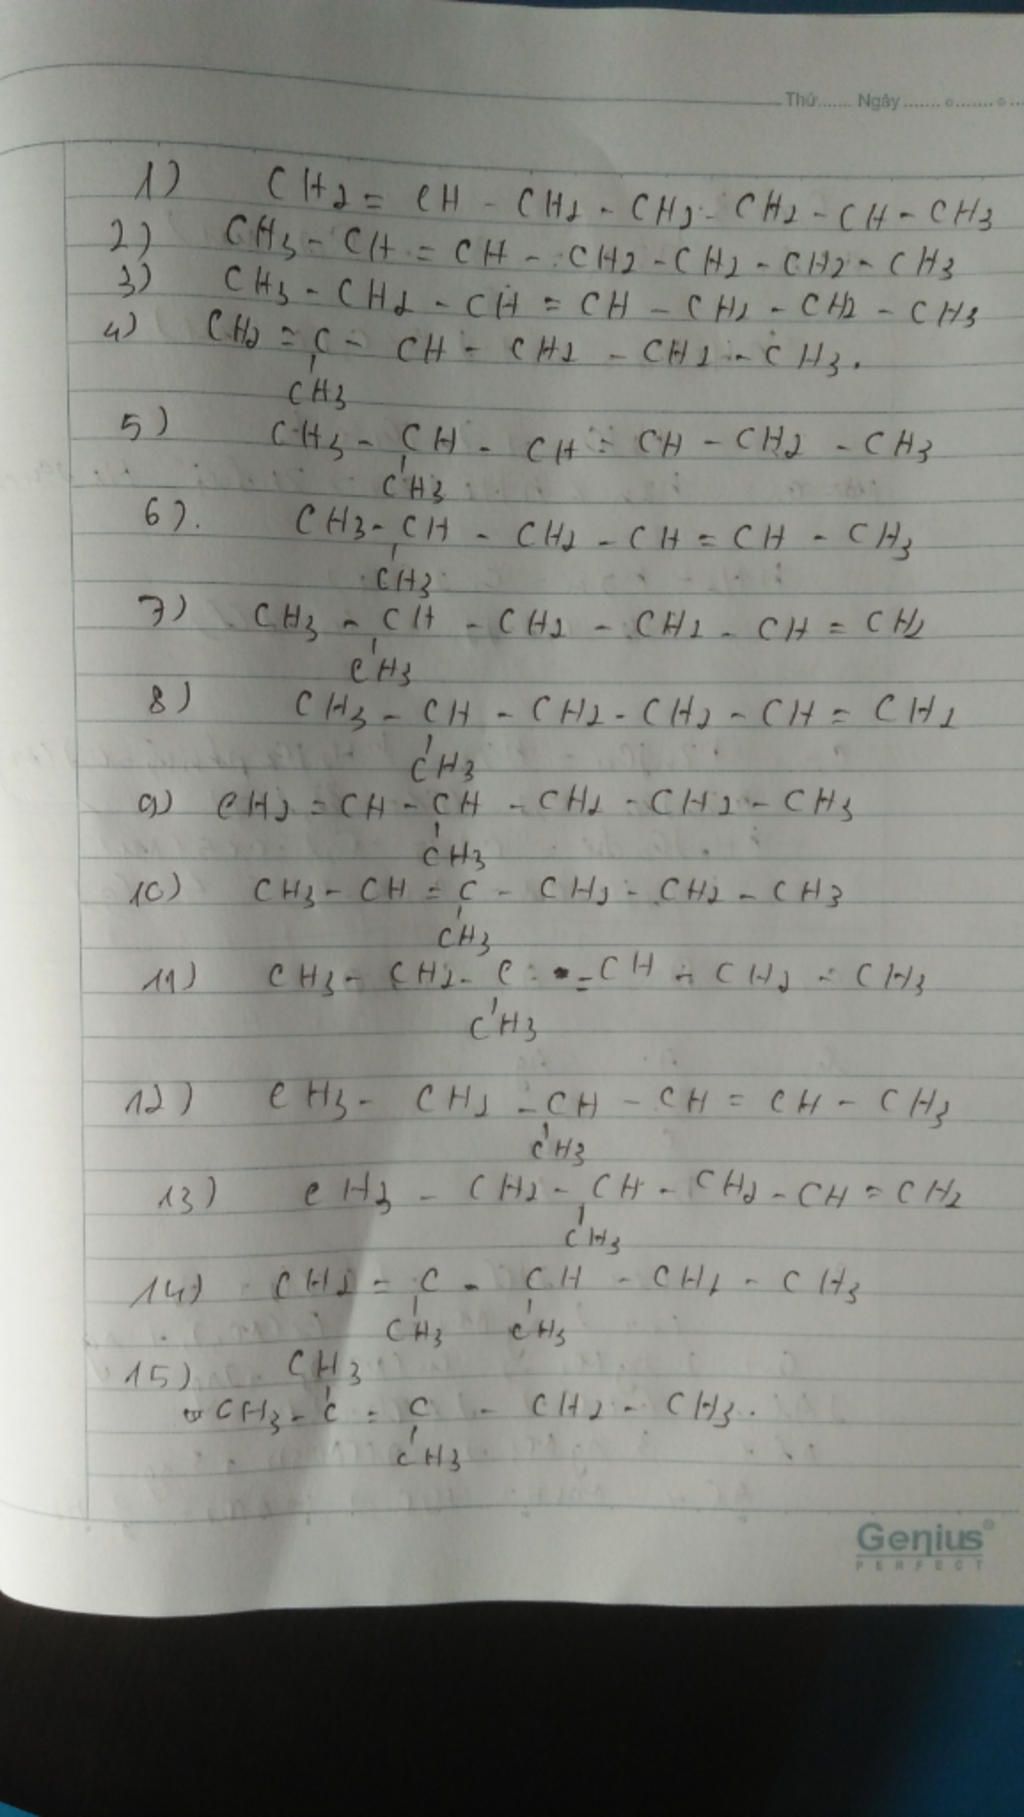 Thứ...... Ngày.......o.......o...
1) CH2 = CH - CH2 - CH2 - CH2 - CH - CH3
2) CH3 - CH = CH - CH2 - CH2 - CH2 - CH3
3) CH3 - CH2 - CH = CH - CH2 - CH2 - CH3
4) CH2 = C - CH - CH2 - CH2 - CH3.
CH3
5) CH3 - CH - CH = CH - CH2 - CH3
CH3
6). CH3 - CH - CH2 - CH = CH - CH3
CH3
7) CH3 - CH - CH2 - CH2 - CH = CH2
CH3
8) CH3 - CH - CH2 - CH2 - CH = CH2
CH3
9) CH2 = CH - CH - CH2 - CH2 - CH3
CH3
10) CH3 - CH = C - CH2 - CH2 - CH3
CH3
11) CH3 - CH2 - C = CH - CH2 - CH3
CH3
12) CH3 - CH2 - CH - CH = CH - CH3
CH3
13) CH3 - CH2 - CH - CH2 - CH = CH2
CH3
14) CH2 = C - CH - CH2 - CH3
CH3 CH3
15) CH3
CH3 - C = C - CH2 - CH3.
CH3
Genius®
PERFECT